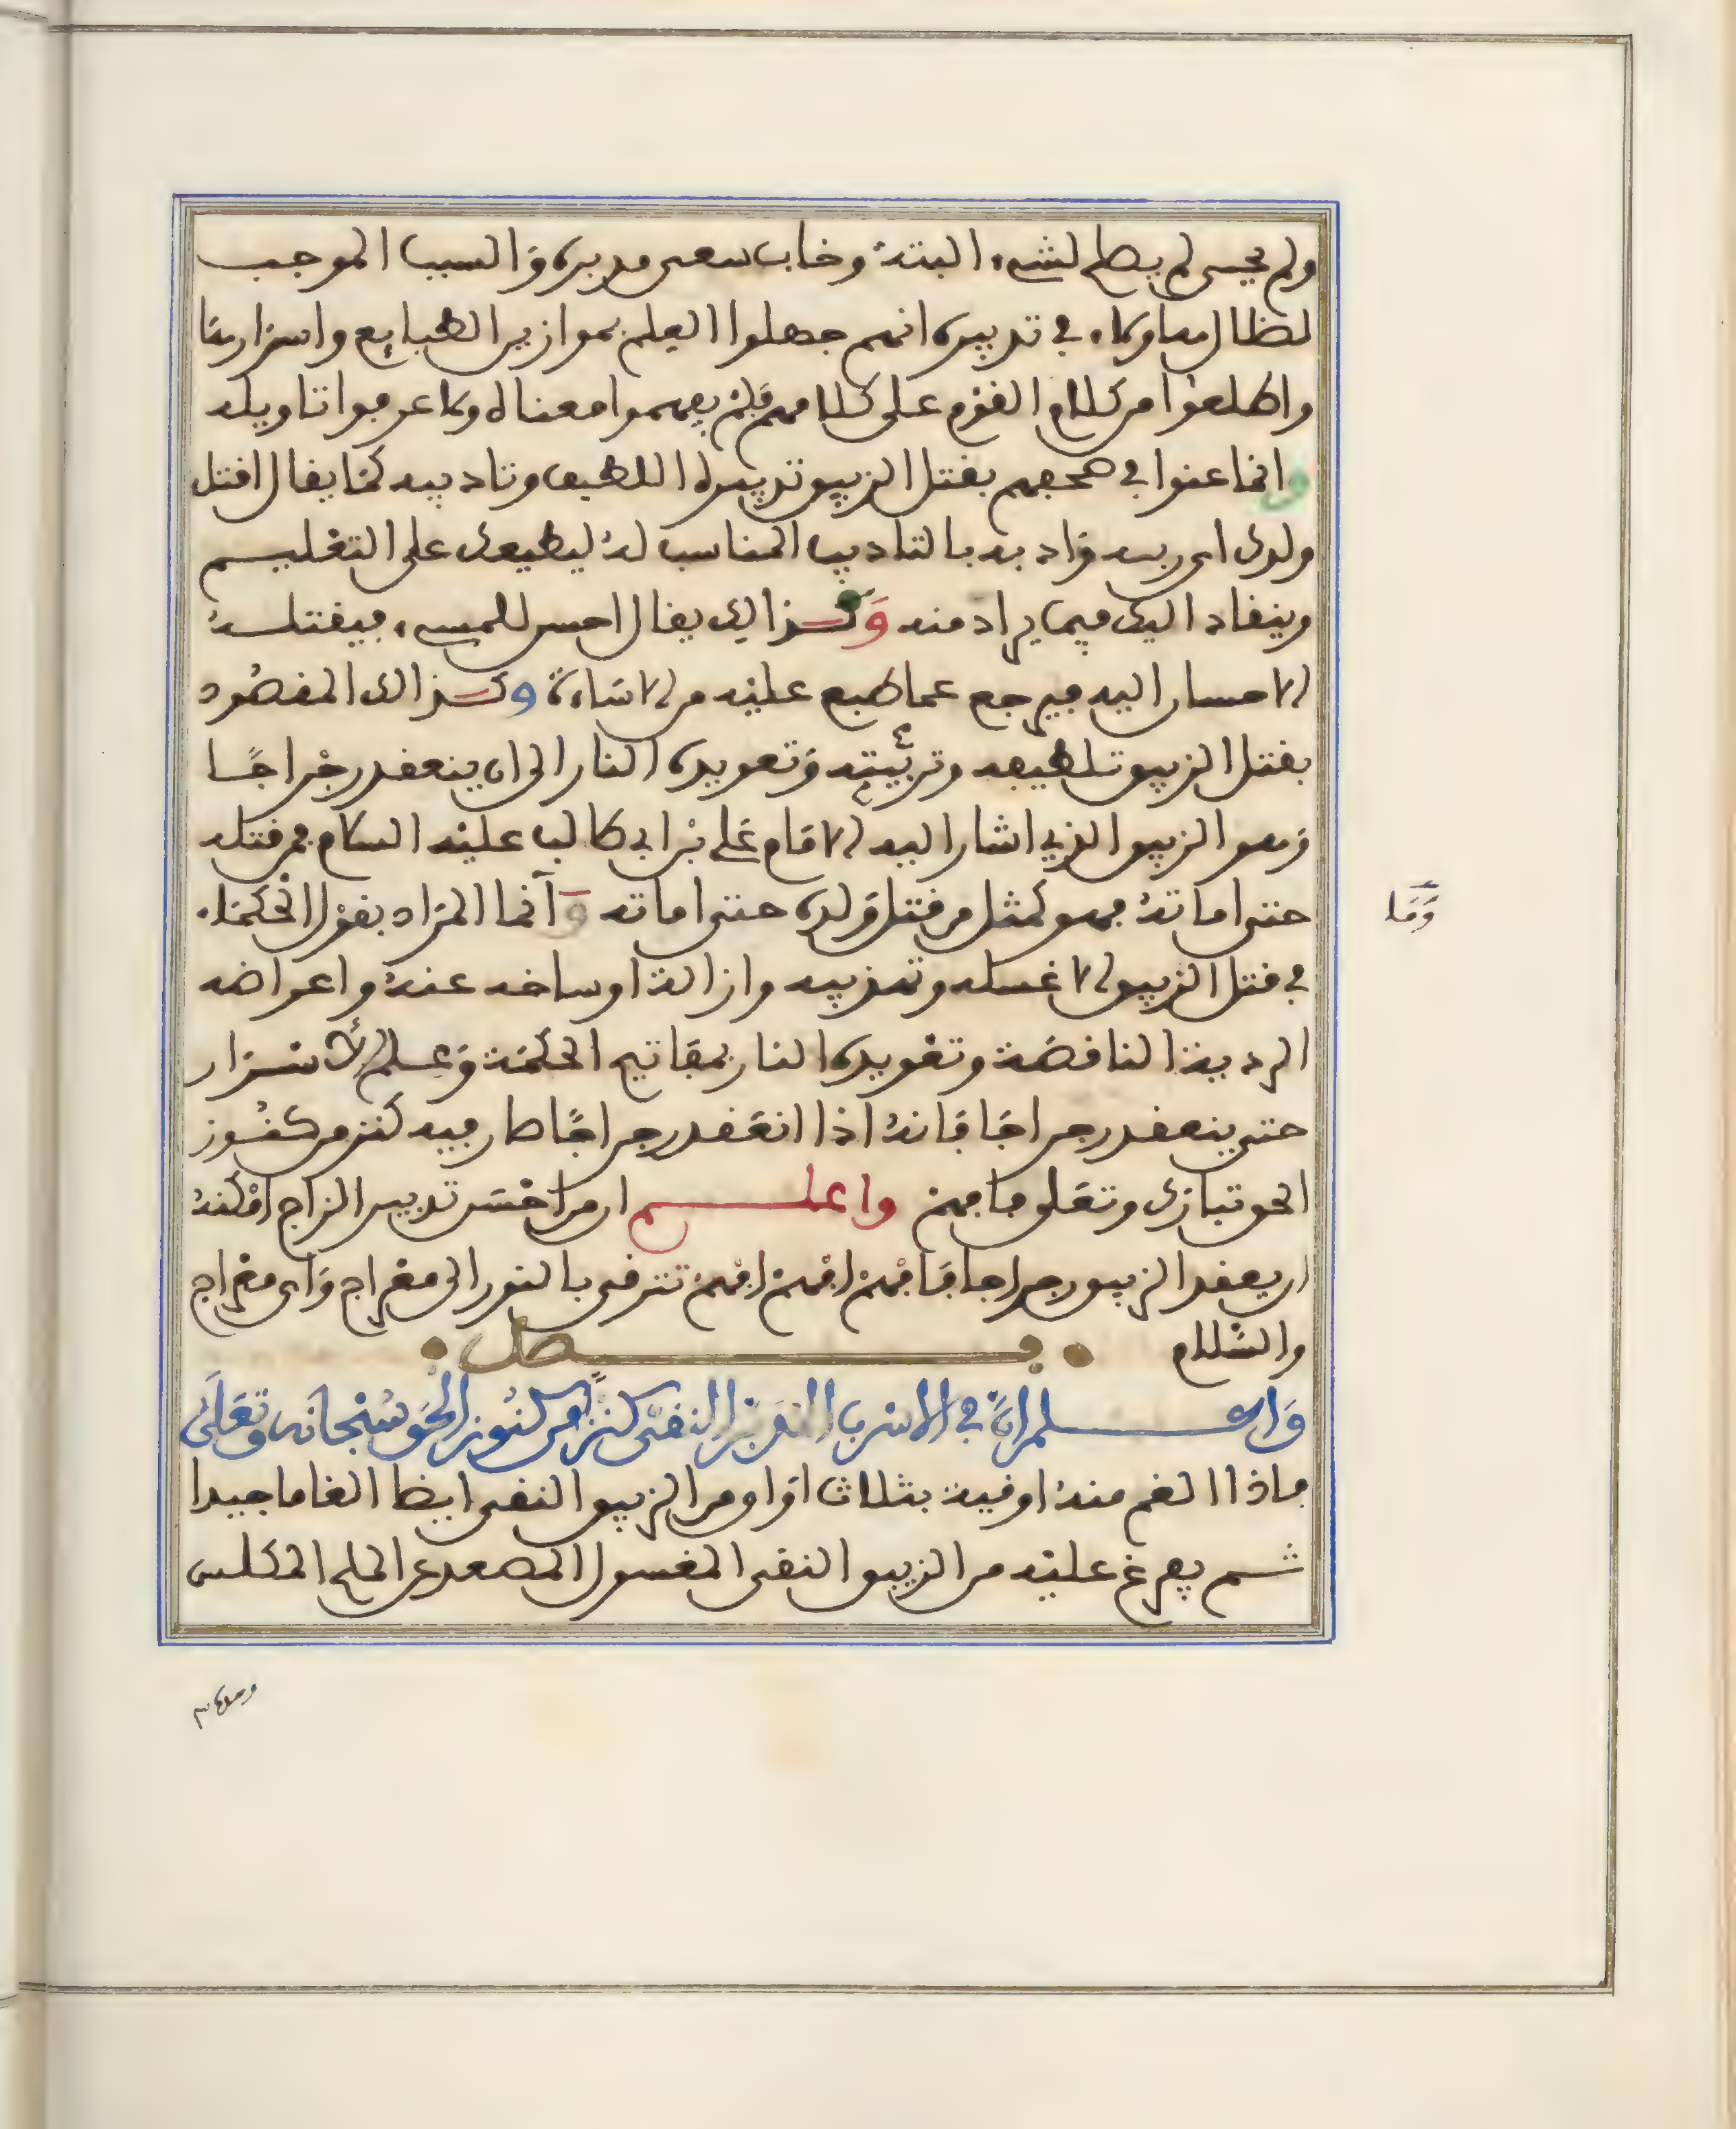 ولم يحيى لم يصلح لشيء البتة وخاب سعى مدبره والسبب الموجب
لضلال هاولاء في تدبيره انهم جهلوا العلم بموازين الطبايع واسرارها
واطلعوا من كلام القوم على كلامهم فلم يفهموا معناه ولا عرفوا تاويله
وانما عنوا في بقتل الزيبق تدبيره اللطيف وتاديبه كما يقال اقتل
ولدك اى ربيه وادبه بالتاديب المناسب له ليطيعك على التعليم
وينقاد اليك فيما يراد منه وكذالك يقال احسن للمسيء فيقتله
الاحسان اليه فيرجع عما طبع عليه من الاساءة وكذالك المقصود
بقتل الزيبق تلطيفه وتربيته وتعويده النار الى ان ينعقد رجراجا
وهو الزيبق الذي اشار اليه الامام علي بن ابي طالب عليه السلام فمن قتله
حتى اماته فهو كمثل من قتل ولده حتى اماته وانما المراد بقول الحكماء
في قتل الزيبق الا غسله وتهذيبه وازالة اوساخه عنه واعراضه
الردية الناقصة وتعويده النار بمفاتيح الحكمة وعلم الاسرار
حتى ينعقد رجراجا فانه اذا انعقد رجراجا صار فيه كنز من كنوز
الحق تبارك وتعلى فافهم واعلم ان من احسن تدبير الزاج امكنه
ان يعقد الزيبق رجراجا فافهم افهم افهم تترقى بالنور الى معراج واى معراج
والسلام فصل
واعلم ان في الاسرب النقي كنز من كنوز الحق سبحانه وتعلى
فاذا الغم منه اوقية بثلاث اواق من الزيبق النقى ايضا الغاما جيدا
ثم يفرغ عليه من الزيبق النقى المغسول المصعد عن الملح المكلس
وما